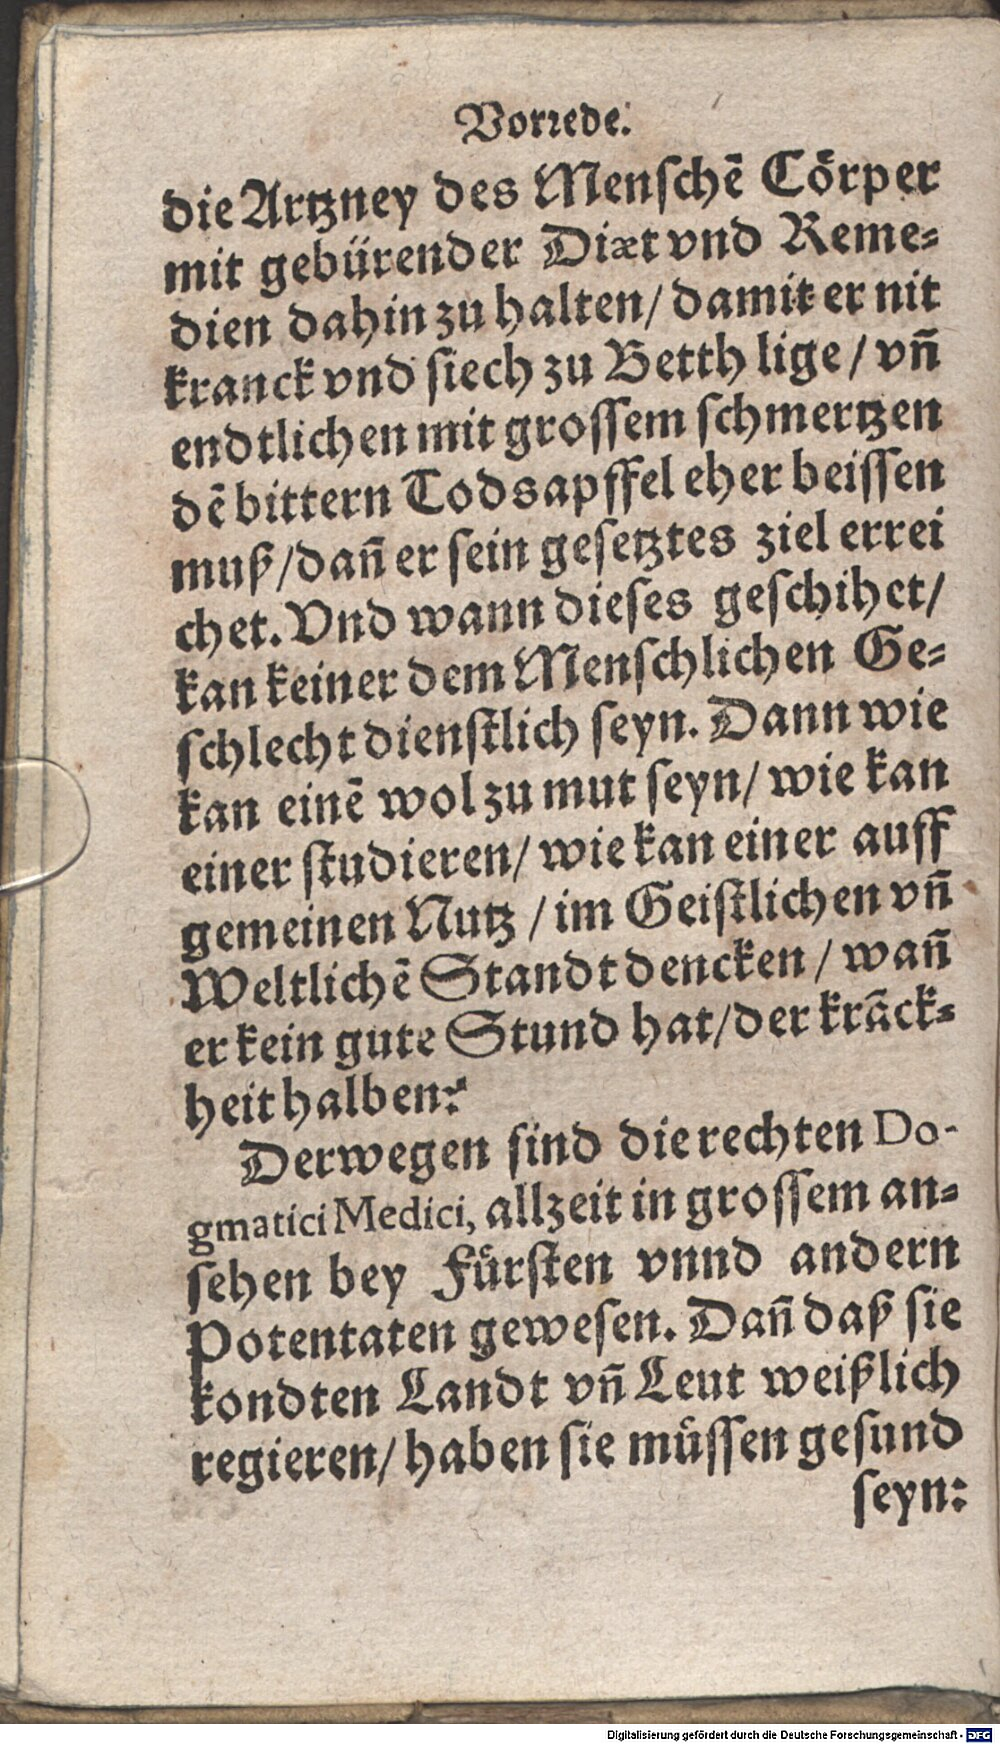 Vorrede.
die Artzney des Menſchē Coͤrper
mit gebuͤrender Diæt vnd Reme⸗
dien dahin zu halten/ damit er nit
kranck vnd ſiech zu Betth lige / vñ
endtlichen mit groſſem ſchmertzen
dē bittern Todsapffel eher beiſſen
muß/ dañ er ſein geſetztes ziel errei
chet. Vnd wann dieſes geſchihet/
kan keiner dem Menſchlichen Ge⸗
ſchlecht dienſtlich ſeyn. Dann wie
kan einē wol zu mut ſeyn/ wie kan
einer ſtudieren/ wie kan einer auff
gemeinen Nutz / im Geiſtlichen vñ
Weltlichē Standt dencken / wañ
er kein gute Stund hat/ der krāck⸗
heit halben?
Derwegen ſind die rechten Do-
gmatici Medici, allzeit in groſſem an⸗
ſehen bey Fuͤrſten vnnd andern
Potentaten geweſen. Dañ daß ſie
kondten Landt vñ Leut weißlich
regieren/ haben ſie muͤſſen geſund
ſeyn:
Digitalisierung gefördert durch die Deutsche Forschungsgemeinschaft - DFG